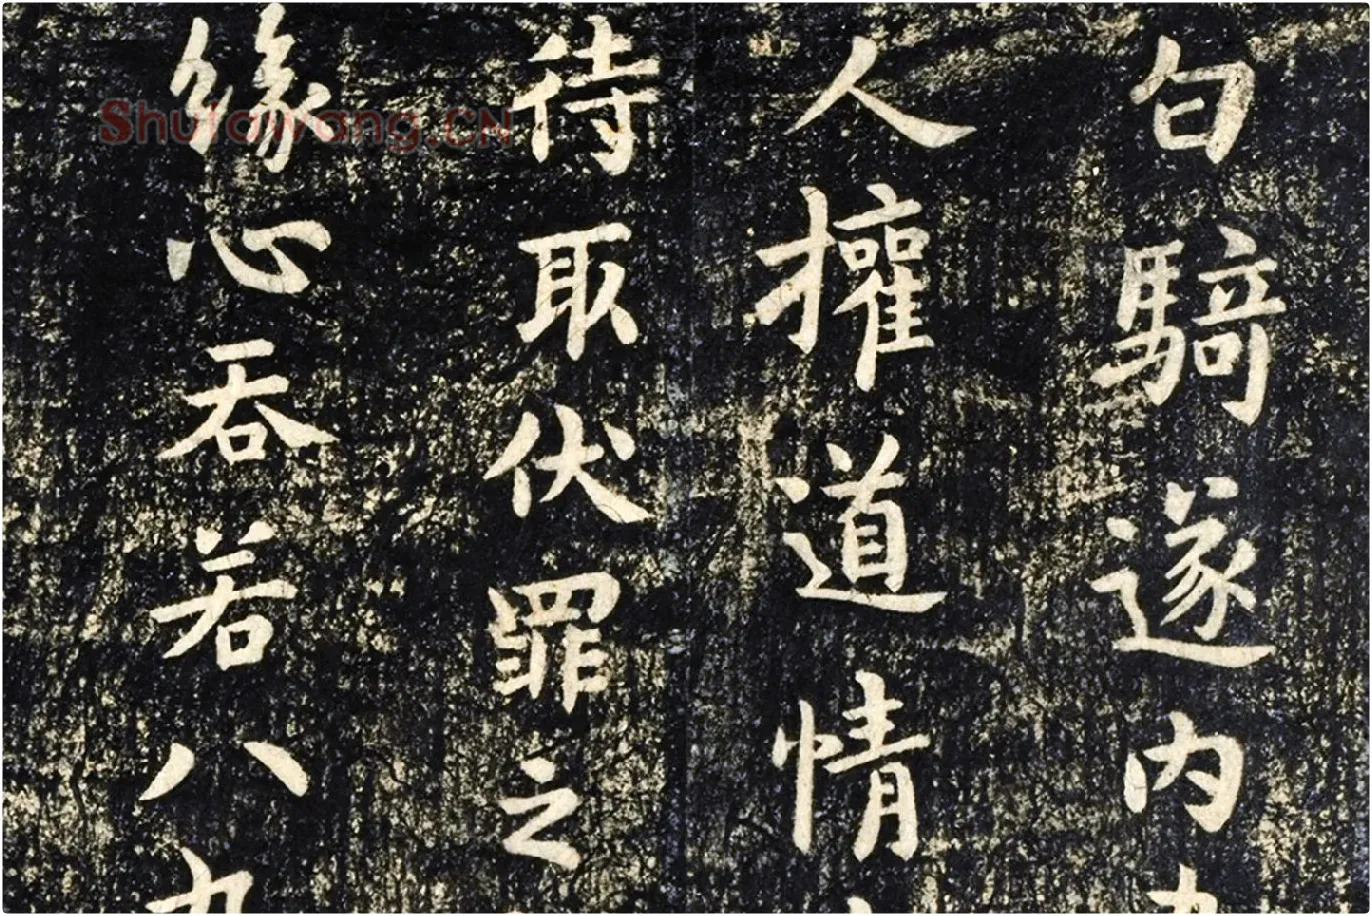 騎遂内
人擁道情
待取伏罪之
緣心吞若八九
Shufawang.CN